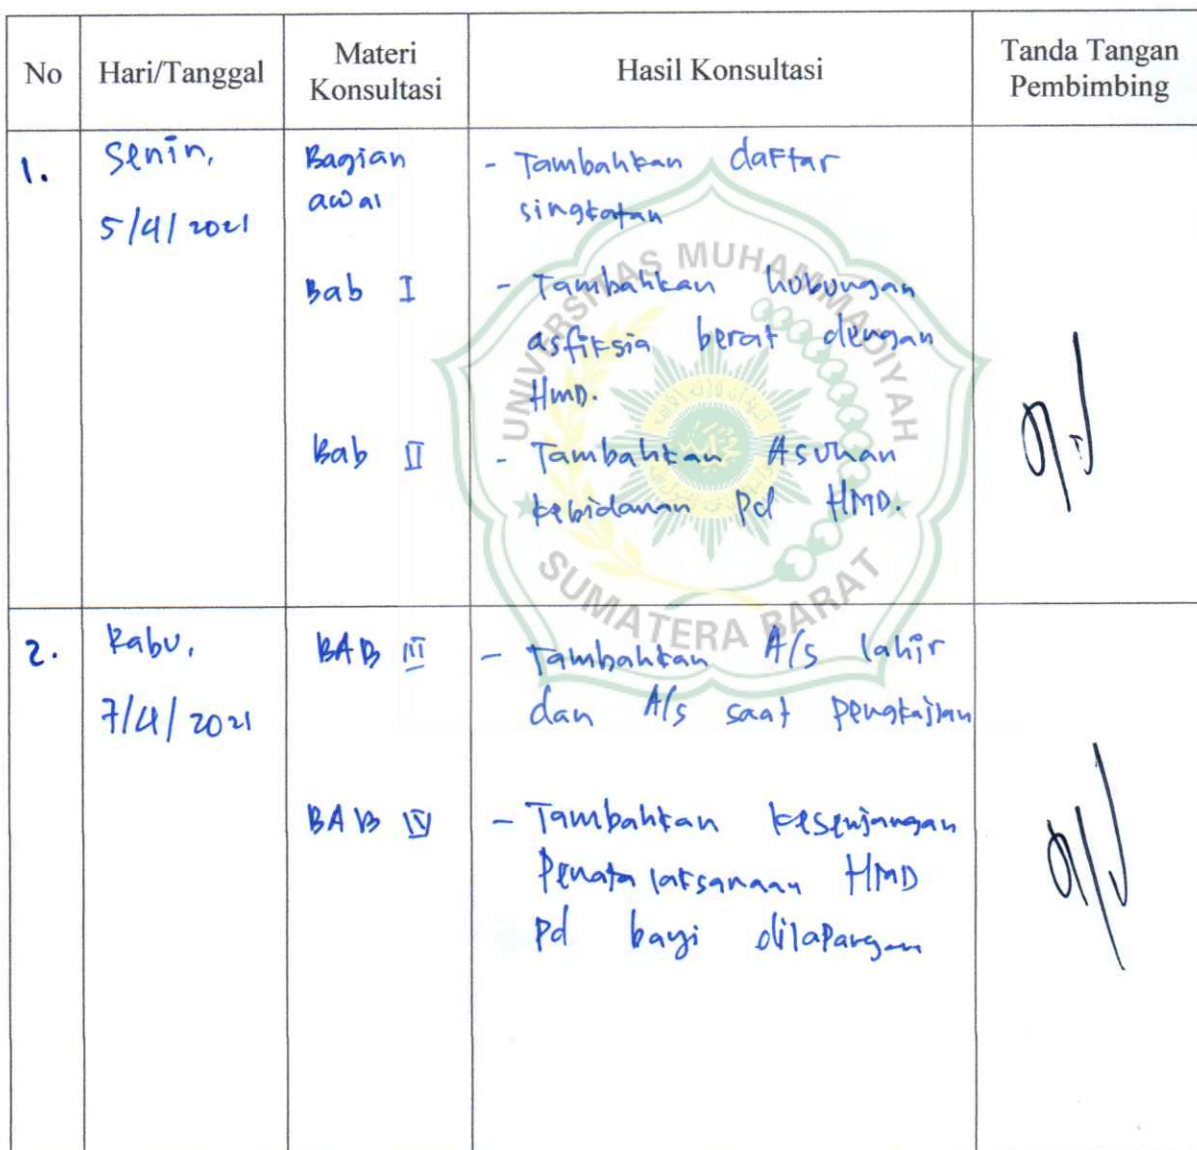 No Hari/Tanggal Materi Konsultasi Hasil Konsultasi Tanda Tangan Pembimbing
1. Senin, Bagian - Tambahkan daftar
5/4/2021 awal singkatan
Bab I - Tambahkan hubungan
asfiksia berat dengan
HMD.
Bab II - Tambahkan Asuhan
kebidanan pd HMD.
2. Rabu, BAB III - Tambahkan A/s lahir
7/4/2021 dan A/s saat pengkajian
BAB IV - Tambahkan kesenjangan
Penatalaksanaan HMD
pd bayi dilapangan
UNIVERSITAS MUHAMMADIYAH
SUMATERA BARAT